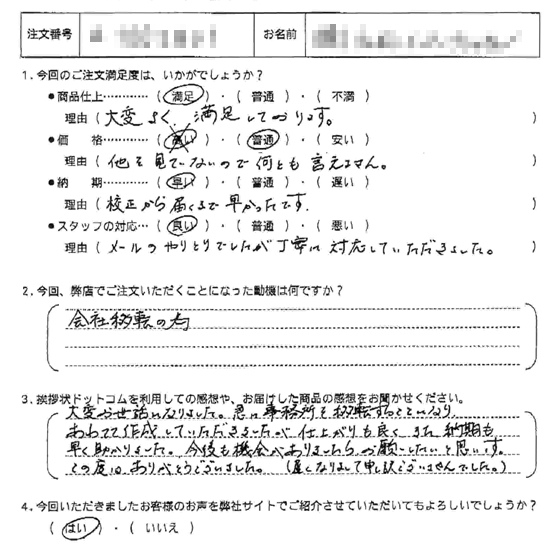 注文番号 お名前
1. 今回のご注文満足度は、いかがでしょうか？
●商品仕上………… ( 満足 ) ・ ( 普通 ) ・ ( 不満 )
理由 ( 大変よく、満足しております。 )
●価 格………… ( 高い ) ・ ( 普通 ) ・ ( 安い )
理由 ( 他を見ていないので何とも言えません。 )
●納 期………… ( 早い ) ・ ( 普通 ) ・ ( 遅い )
理由 ( 校正から届くまで早かったです。 )
●スタッフの対応… ( 良い ) ・ ( 普通 ) ・ ( 悪い )
理由 ( メールのやりとりでしたが丁寧に対応していただきました。 )
2. 今回、弊店でご注文いただくことになった動機は何ですか？
会社移転の為
3. 挨拶状ドットコムを利用しての感想や、お届けした商品の感想をお聞かせください。
大変お世話になりました。急に事務所を移転することになり
あわてて作成していただきましたが仕上がりも良く また 納期も
早く助かりました。今後も機会がありましたらお願いしたいと思います。
この度は ありがとうございました。 (遅くなりまして申し訳ございませんでした。)
4. 今回いただきましたお客様のお声を弊社サイトでご紹介させていただいてもよろしいでしょうか？
( はい ) ・ ( いいえ )